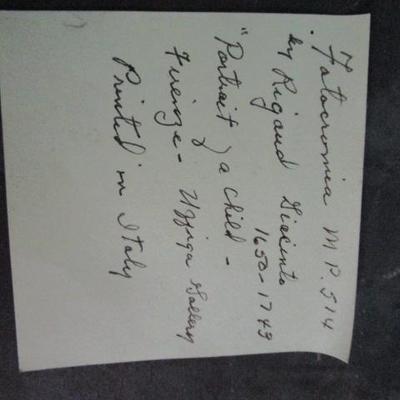 . Fotocromia M P. 514
by Rigaud Giacinto
1650-1743
"Portrait of a child -
Firenze - Uffiza Gallery
Printed in Italy